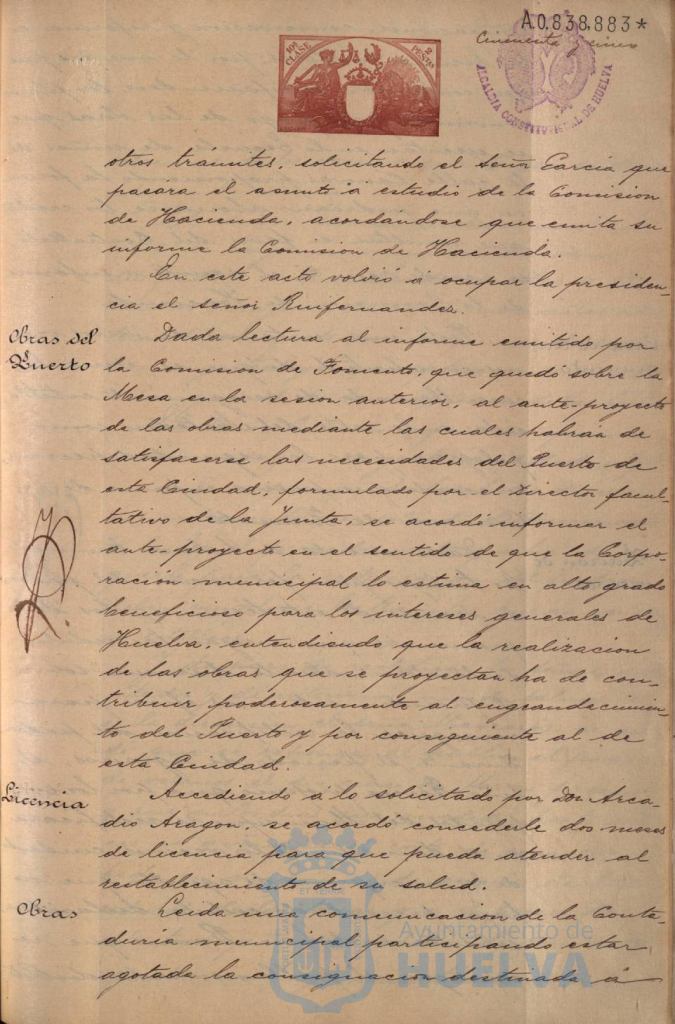 A.0.838,883*
Cincuenta y cinco
10ª CLASE
2 PESETAS
ALCALDIA CONSTITUCIONAL DE HUELVA
otros trámites, solicitando el señor Garcia que
pasára el asunto á estudio de la Comision
de Hacienda, acordándose que emita su
informe la Comision de Hacienda.
En este acto volvió á ocupar la presiden-
cia el señor Ruifernandez.
Obras del
Puerto
Dada lectura al informe emitido por
la Comision de Fomento, que quedó sobre la
Mesa en la sesion anterior, al ante-proyecto
de las obras mediante las cuales habrán de
satisfacerse las necesidades del Puerto de
esta Ciudad, formulado por el Director facul-
tativo de la Junta, se acordó informar el
ante-proyecto en el sentido de que la Corpo-
ración municipal lo estima en alto grado
beneficioso para los intereses generales de
Huelva, entendiendo que la realizacion
de las obras que se proyectan ha de con-
tribuir poderosamente al engrandecimien-
to del Puerto y por consiguiente al de
esta Ciudad.
Licencia
Accediendo á lo solicitado por Don Arca-
dio Aragon, se acordó concederle dos meses
de licencia para que pueda atender al
restablecimiento de su salud.
Obras
Leida una comunicacion de la Conta-
duria municipal participando estar
agotada la consignacion destinada á
Ayuntamiento de
HUELVA